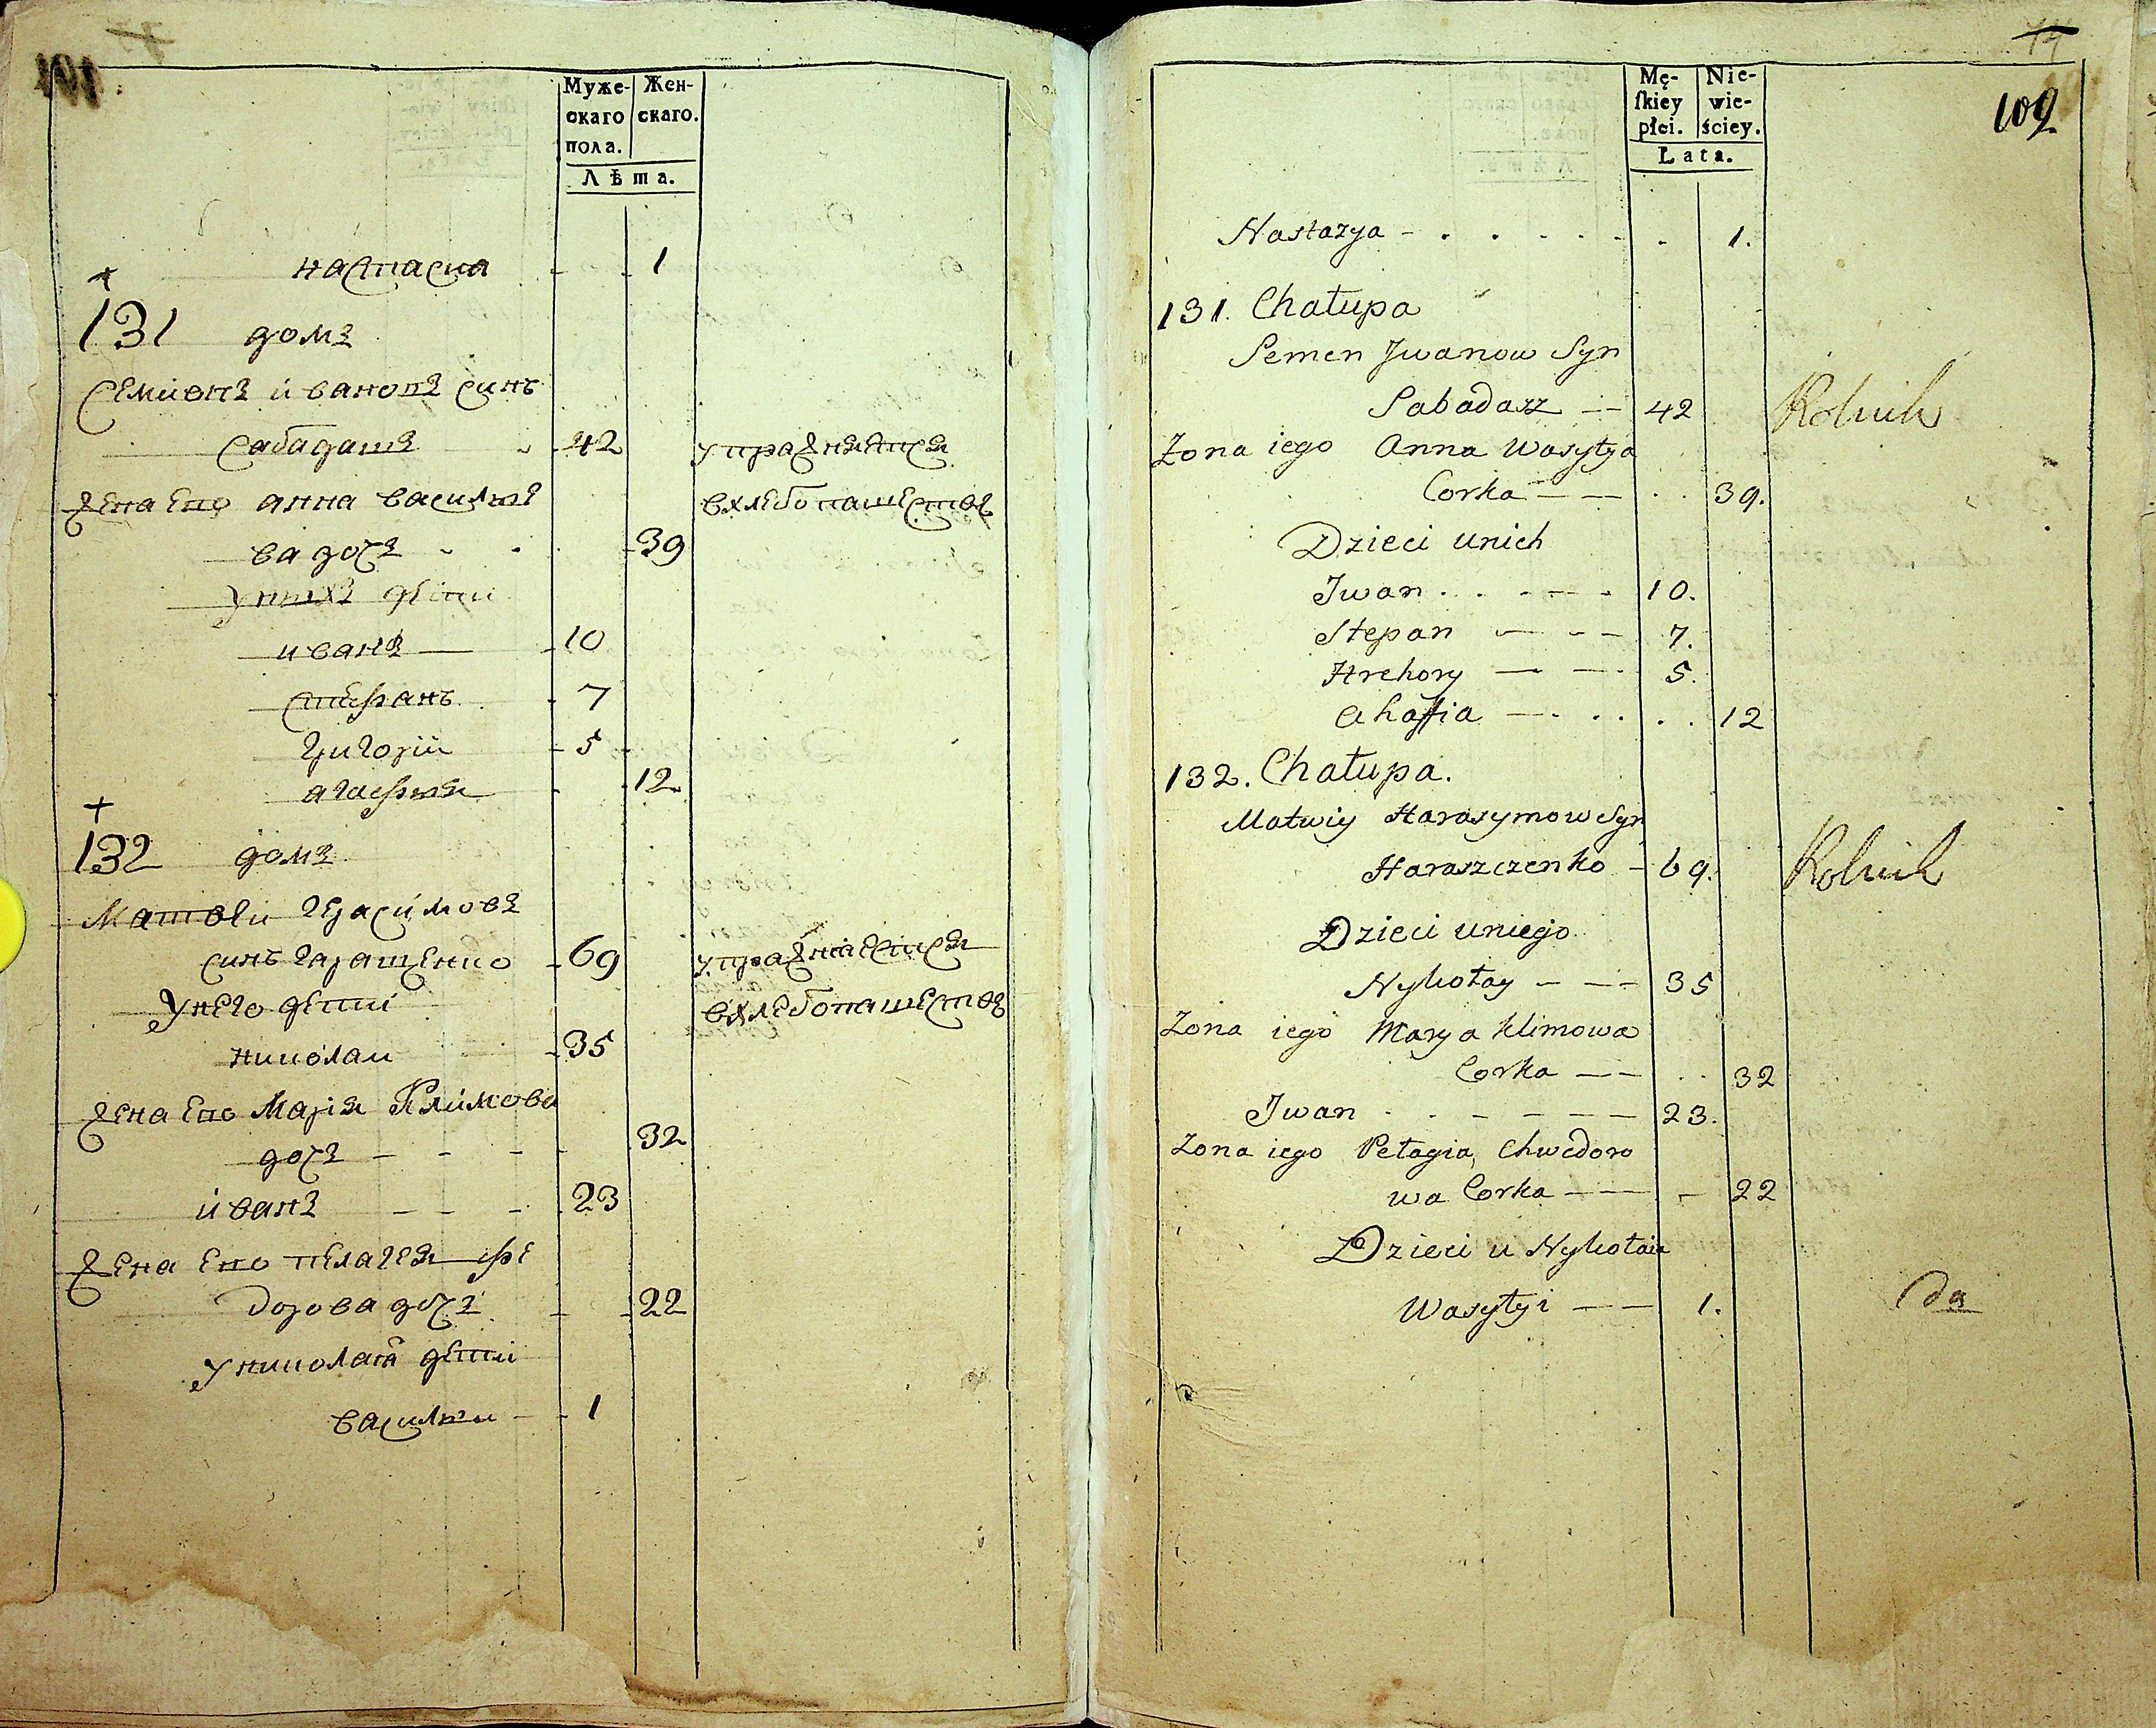 Муже-
скаго
пола.
Жен-
скаго.
Лѣта.
настасия - - 1
131 домъ
Семионъ ивановъ синъ
Сабадашъ - 42 упражняется
жена его анна василье
вхлебопашествъ
ва дочъ - - 39
Унихъ дѣти
иванъ - 10
стефанъ - 7
григорій - 5
агафия - 12
132 домъ
Матвеи герасимовъ
синъ гаращенко - 69 упражняется
Унего дети
вхлебопашествъ
николаи - 35
жена его Мария Климова
дочъ - - - 32
иванъ - - - 23
жена его пелагея фе
дорова дочъ - - 22
Униколая дети
василии - - 1
102
Mę-
skiey
płci.
Nie-
wie-
ściey.
Lata.
Nastazya - . . . . - . 1.
131. Chałupa
Semen Jwanow Syn
Sabadasz - - 42 Rolnik
Zona iego Anna Wasyłya
Corka - - . . 39.
Dzieci unich
Jwan . . - - - . 10.
Stepan - - - 7.
Hrehory - - 5.
Ahaffia - . . . . 12
132. Chałupa.
Matwiy Harasymow Syn
Haraszczenko - 69. Rolnik
Dzieci uniego
Nykołay - - - 35
Zona iego Marya Klimowa
Corka - - . . 32
Jwan . . - - - - 23.
Zona iego Pełagia Chwedoro
wa Corka - - - 22
Dzieci u Nykołaia
Wasyłyi - - 1.